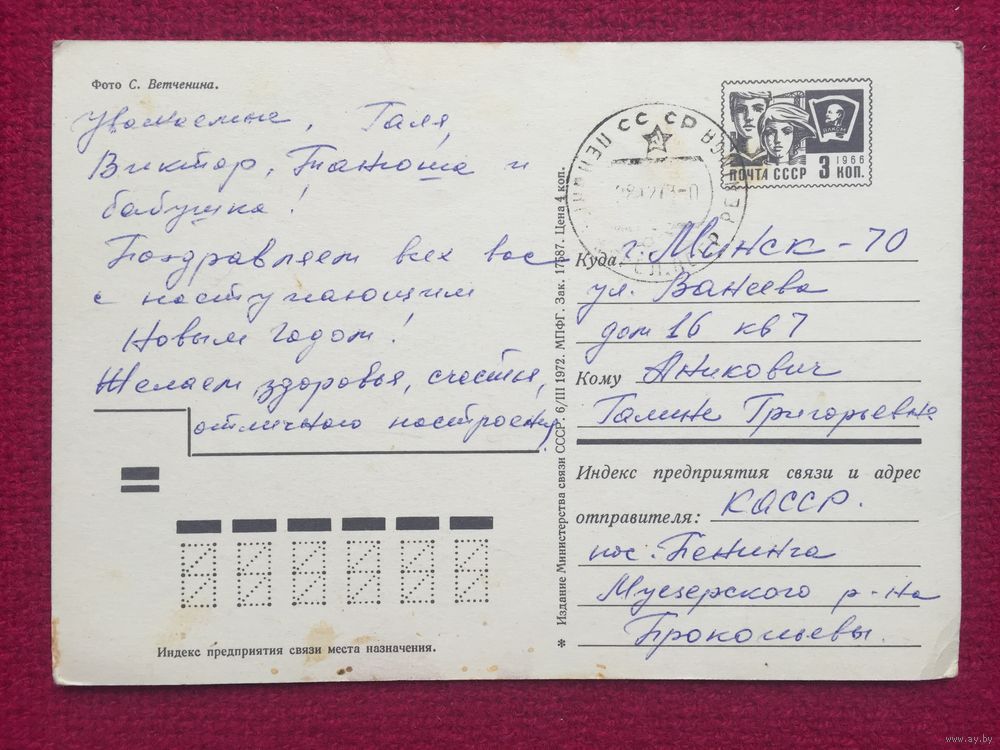 Фото С. Ветченина.
Уважаемые, Галя,
Виктор, Танюша и
бабушка!
Поздравляем всех вас
с наступающим
Новым годом!
Желаем здоровья, счастья,
отличного настроения.
Индекс предприятия связи места назначения.
✱ Издание Министерства связи СССР. 6/III 1972. МПФГ. Зак. 17587. Цена 4 коп.
ВЛКСМ
1966
ПОЧТА СССР 3 КОП.
СССР
Куда г. Минск-70
ул. Ванеева
дом 16 кв 7
Кому Аникович
Галине Григорьевне
Индекс предприятия связи и адрес
отправителя: КАССР.
пос. Пенинга
Муезерского р-на
Прокопьевы.
www.ay.by